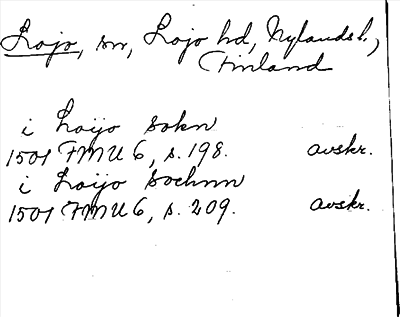 Lojo, sn, Lojo hd, Nylands l.,
Finland
i Loijo sokn
1501 FMU 6, s. 198. avskr.
i Loijo sochnn
1501 FMU 6, s. 209. avskr.